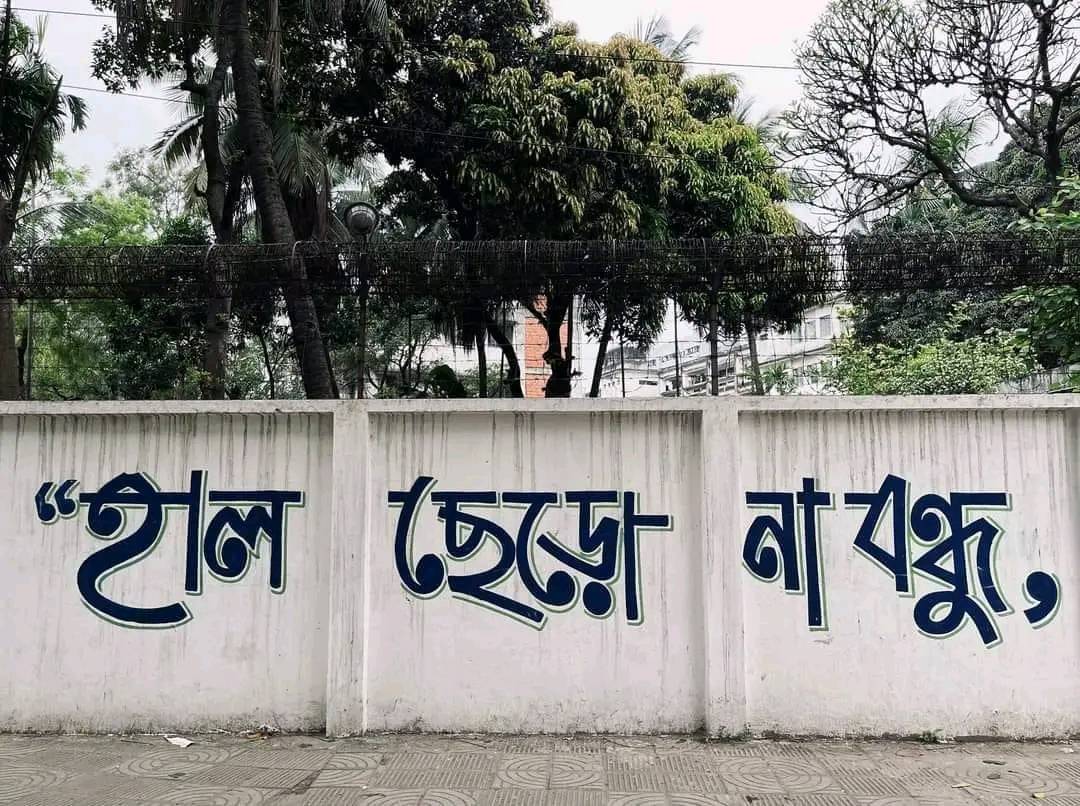 “হাল ছেড়ো না বন্ধু,